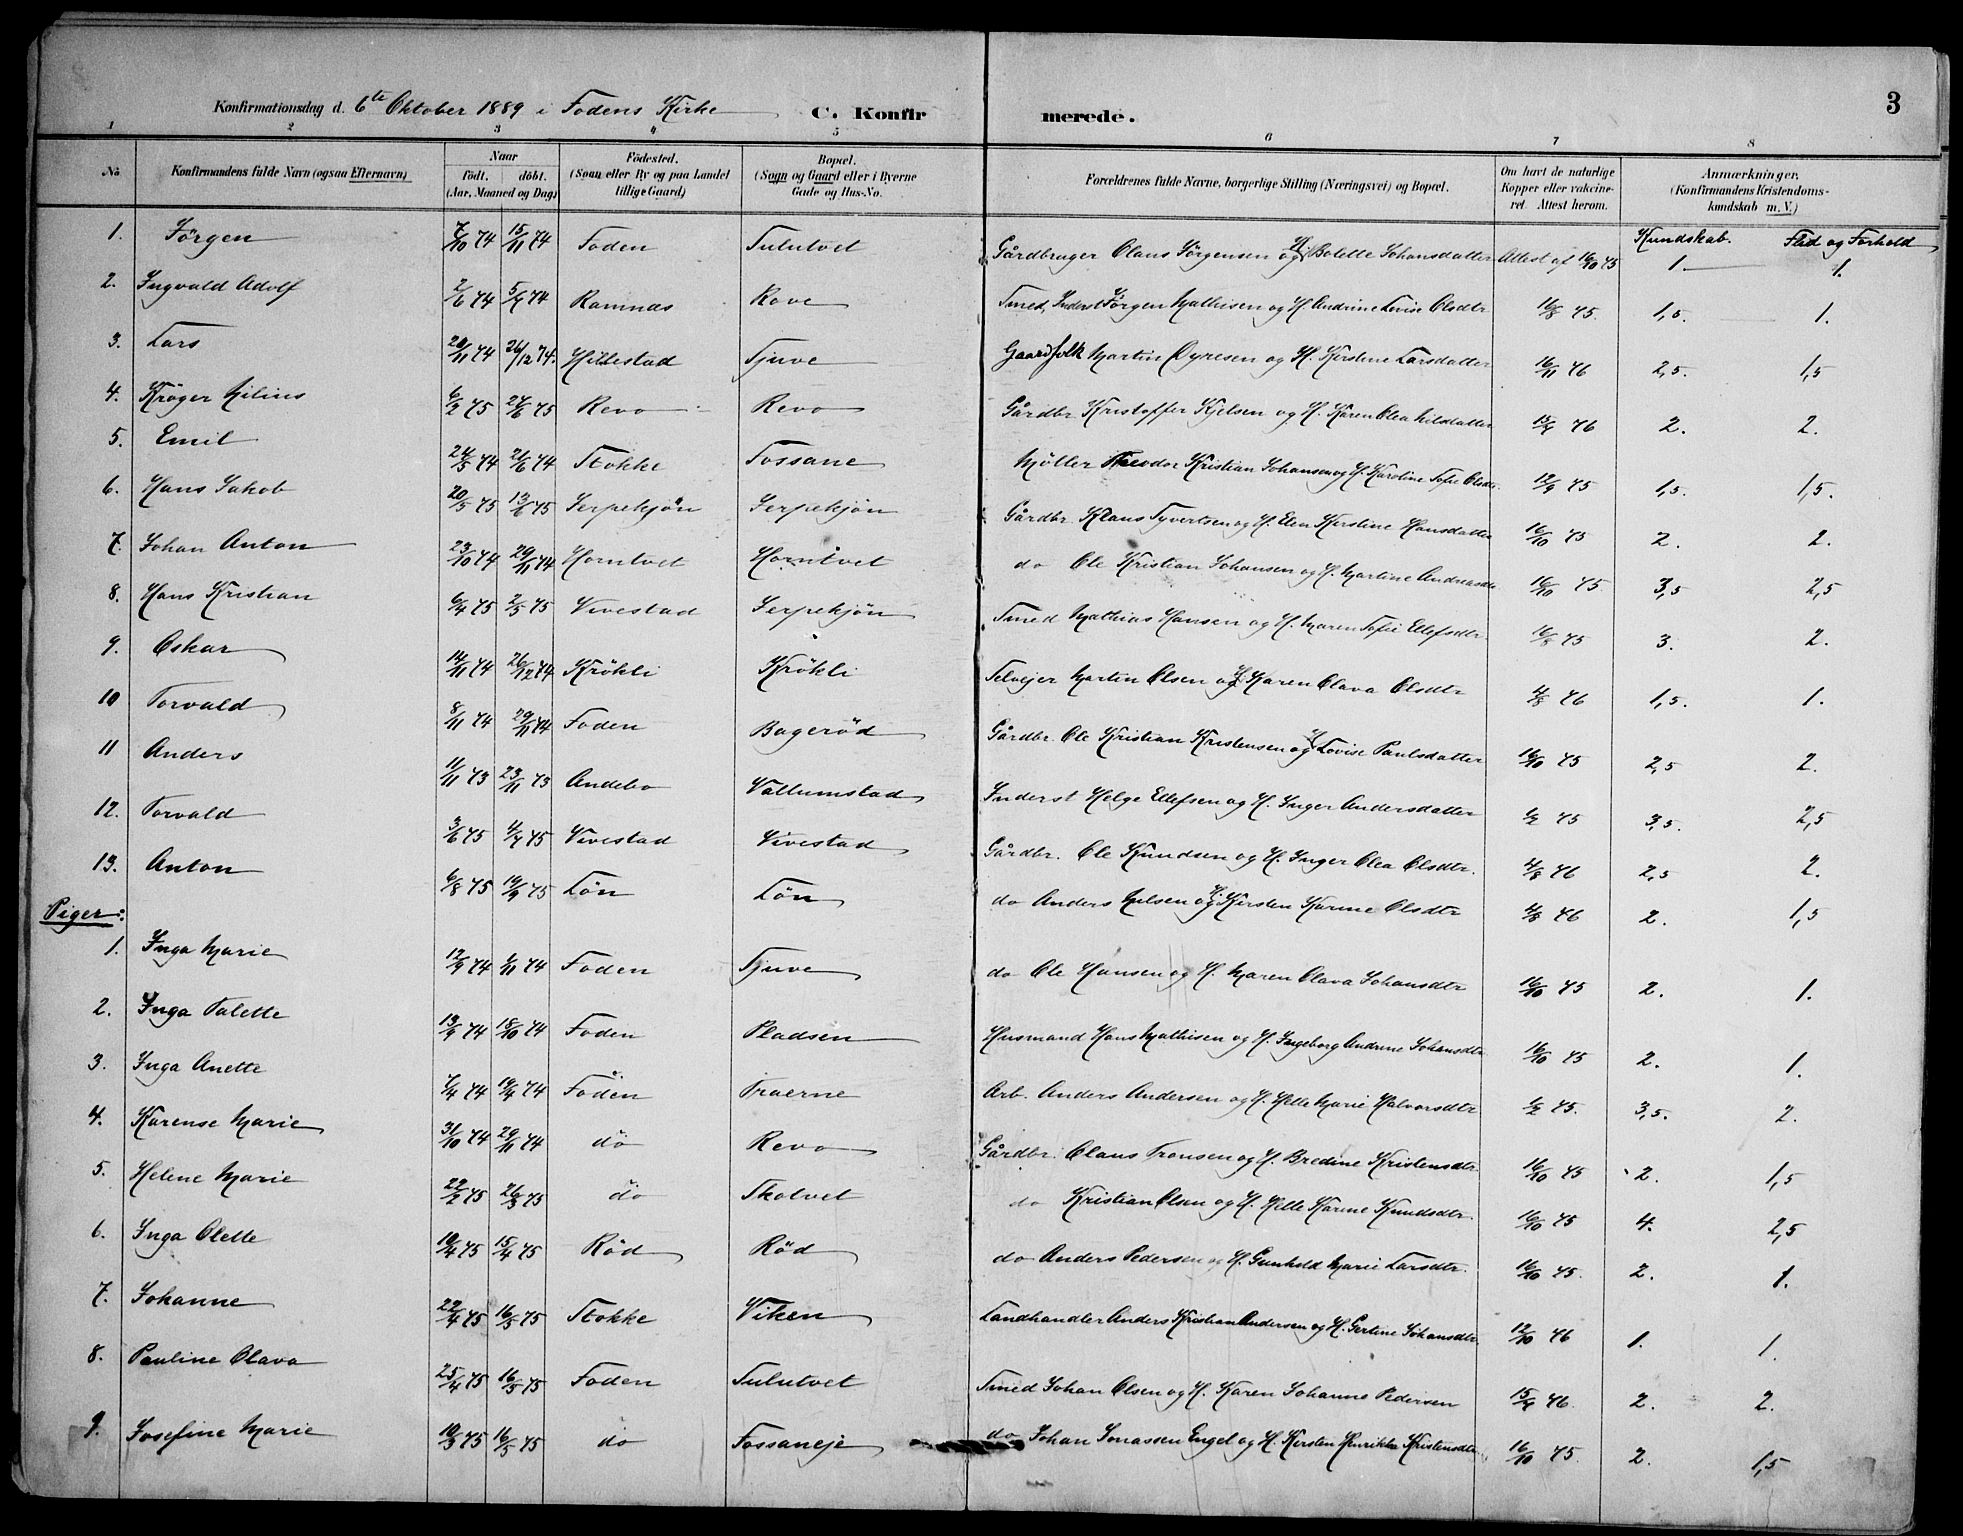 Konfirmationsdag d. 6te Oktober 1889 i Fodens Kirke C. Konfir merede. 3
1 2 3 4 5 6 7 8
No. Konfirmandens fulde Navn (ogsaa Efternavn) Naar Födt. döbt. (Aar, Maaned og Dag) Födested. (Sogn eller By og paa Landet tillige Gaard.) Bopæl. (Sogn og Gaard eller i Byerne Gade og Hus-No. Forældrenes fulde Navne, borgerlige Stilling (Næringsvei) og Bopæl. Om havt de naturlige Kopper eller vakcineret. Attest herom. Anmærkninger. (Konfirmandens Kristendomskundskab m. V.)
Kundskab. Flid og Forhold
1. Jörgen 7/10 74 15/11 74 Foden Tulutvet Gårdbruger Olaus Jörgensen og H. Bolette Johansdatter Attest af 16/10 75 1. 1.
2. Ingvald Adolf 2/6 74 5/7 74 Ramnäs Rove Smed, Inderst Jörgen Mathisen og H. Andrine Lovise Olsdtr 16/8 75. 1,5. 1.
3. Lars 20/11 74 26/12 74. Hillestad Tjuve Gaardfolk Martin Dyresen og H. Kirstine Larsdatter 16/11 76 2,5. 1,5
4. Kröger Nilius 6/2 75 27/6 75 Revo Revo Gårdbr. Kristoffer Kjelsen og H. Karen Olea Nilsdatter 15/9 76 2. 2.
5. Emil 24/5 74 21/6 74 Stokke Fossane Möller Theodor Kristian Johansen og H. Karoline Sofie Olsdtr. 12/9 75 1,5. 1,5.
6. Hans Jakob 20/5 75 13/6 75 Serpekjön Serpekjön Gårdbr. Klaus Syvertsen og H. Elen Kirstine Hansdatter 16/10 75 2. 2.
7. Johan Anton 23/10 74 29/11 74 Horntvet Horntvet do Ole Kristian Johansen og H. Martine Andreasdtr 16/10 75 3,5 2,5
8. Hans Kristian 6/4 75 2/5 75 Vivestad Serpekjön Smed Mathias Hansen og H. Maren Sofie Ellefsdtr. 16/8 75 3. 2.
9. Oskar 14/11 74 26/12 74 Krökli Krökli Selvejer Martin Olsen og H. Karen Olava Olsdtr 4/8 76 1,5. 1.
10 Torvald 8/11 74 29/11 74 Foden Bageröd Gårdbr. Ole Kristian Kristensen og H. Lovise Paulsdatter 16/10 75 2,5 2.
11 Anders 11/11 73 23/11 73 Andebo Vallumstad Inderst Helge Ellefsen og H. Inger Andersdatter 1/2 75 3,5. 2,5
12. Torvald 3/6 75 4/7 75 Vivestad Vivestad Gårdbr. Ole Knudsen og H. Inger Olea Olsdtr. 4/8 76 2,5 2.
13. Anton 6/8 75 19/9 75 Lön Lön do Anders Nilsen og H. Kirsten Karine Olsdtr 4/8 76 2. 1,5
Piger:
1. Inga Marie 12/9 74 1/11 74 Foden Tjuve do Ole Hansen og H. Maren Olava Johansdtr 16/10 75 2. 1.
2. Inga Talette 13/9 74 18/10 74 Foden Pladsen Husmand Hans Mathisen og H. Ingeborg Andrine Johansdtr 16/10 75 2. 1.
3. Inga Anette 7/4 74 19/4 74 Foden Traerne Arb. Anders Andersen og H. Helle Marie Halvorsdtr 1/2 75. 3,5. 2.
4. Karense Marie 31/10 74 29/11 74 do Revo Gårdbr. Olaus Tronsen og H. Bredine Kristensdtr. 16/10 75 2. 1,5
5. Helene Marie 22/2 75 26/3 75 do Skotvet do Kristian Olsen og H. Helle Karine Knudsdtr. 16/10 75 4. 2,5
6. Inga Olette 10/4 75 15/4 75 Röd Röd do Anders Pedersen og H. Gunhild Marie Larsdtr. 16/10 75. 2. 1.
7. Johanne 22/4 75 16/5 75 Stokke Viken Landhandler Anders Kristian Andersen og H. Gertine Johansdtr. 12/10 76 1. 1.
8. Pauline Olava 25/4 75 16/5 75 Foden Tulutvet Smed Johan Olsen og H. Karen Johanne Pedersen 15/9 76. 2. 2.
9. Josefine Marie 10/3 75 16/5 75 do Fossaneje do Johan Jonassen Engel og H. Kirsten Henrikke Kristensdtr. 16/10 75. 2. 1,5